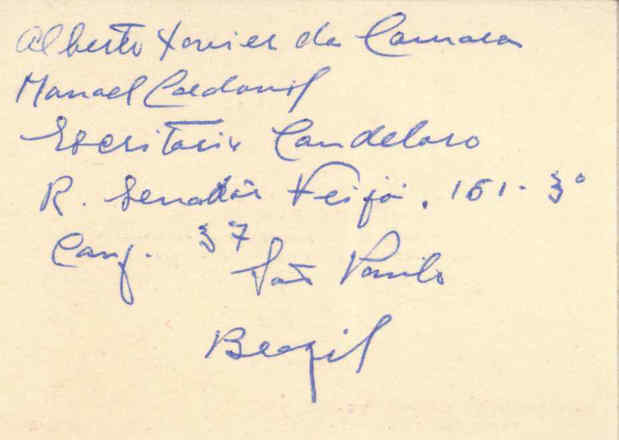 Alberto Xavier da Camara
Manoel
Escritorio Candeloro
R. Senador Feijó, 161 - 3º
Conj. 37
São Paulo
Brazil